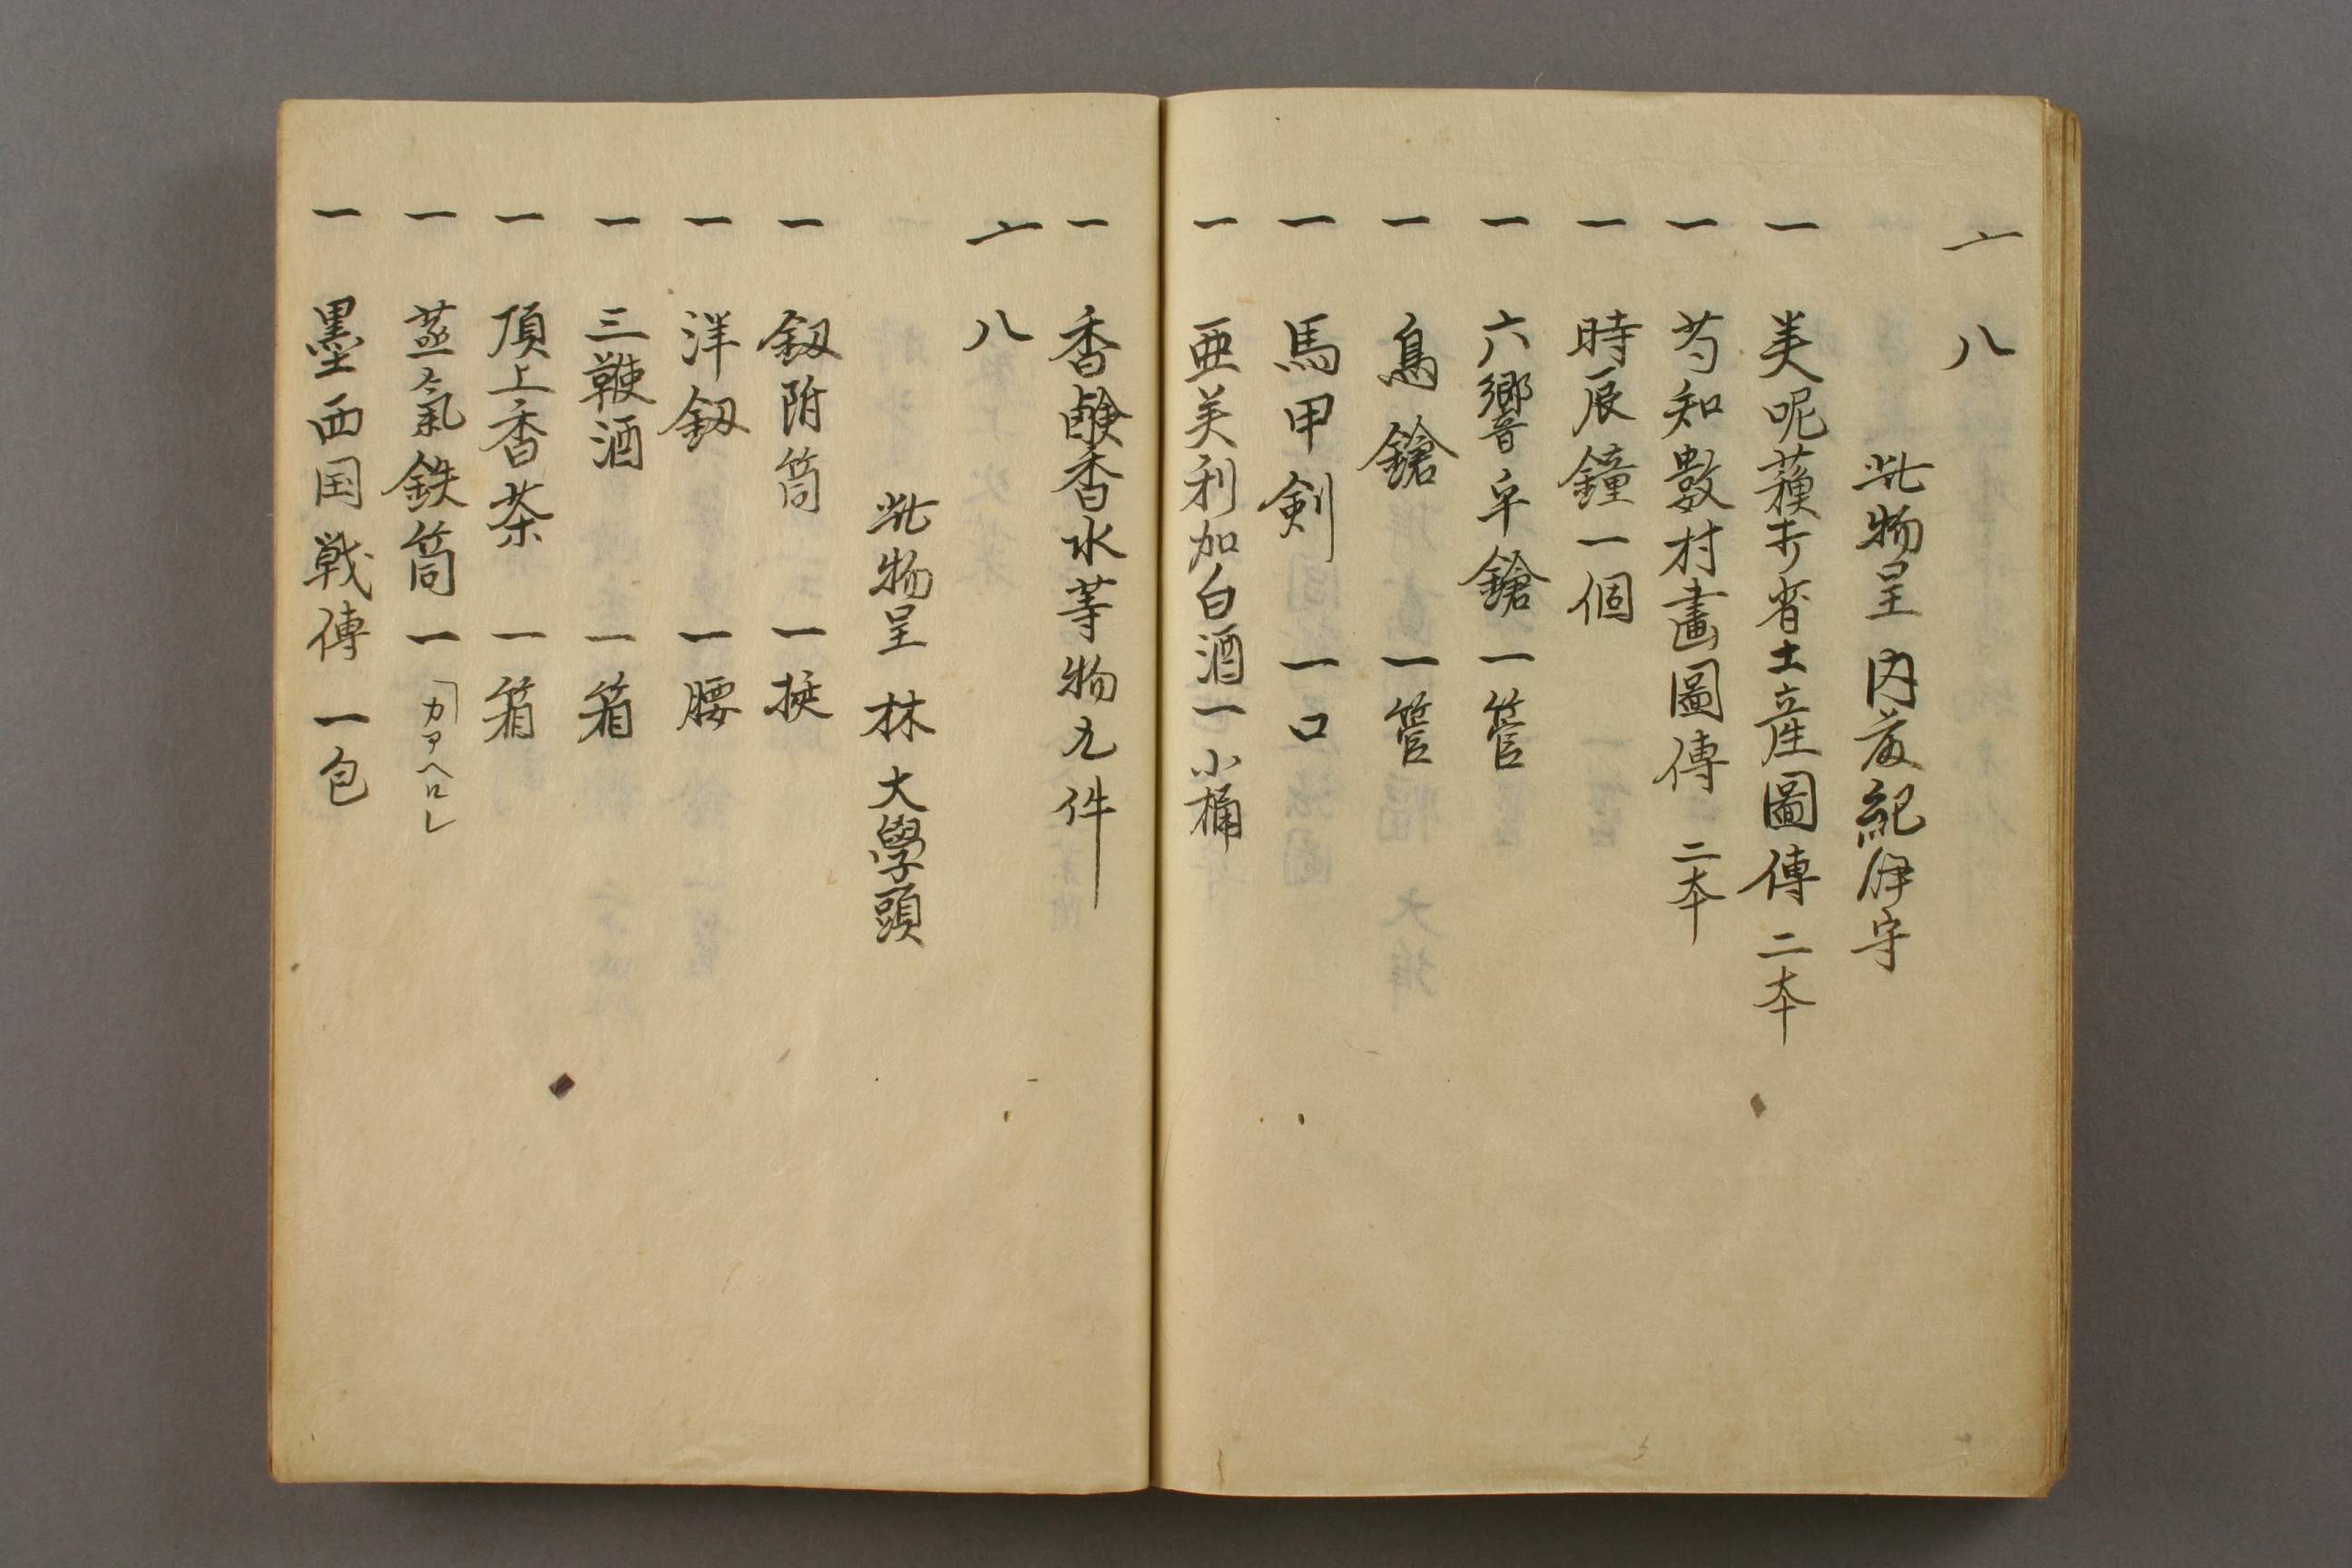 一八
此物呈 内藤紀伊守
一 美呢蘓打省土産圖傳 二本
一 芍知數村畫圖傳 二本
一 時辰鐘一個
一 六響手鎗 一管
一 鳥鎗 一管
一 馬甲剣 一口
一 亜美利加白酒一小桶
一 香鹸香水等物九件
一八
此物呈 林大學頭
一 釼附筒 一挾
一 洋釼 一腰
一 三鞭酒 一箱
一 頂上香茶 一箱
一 蒸氣鉄筒 一「カアヘロレ
一 墨西国戦傳 一包